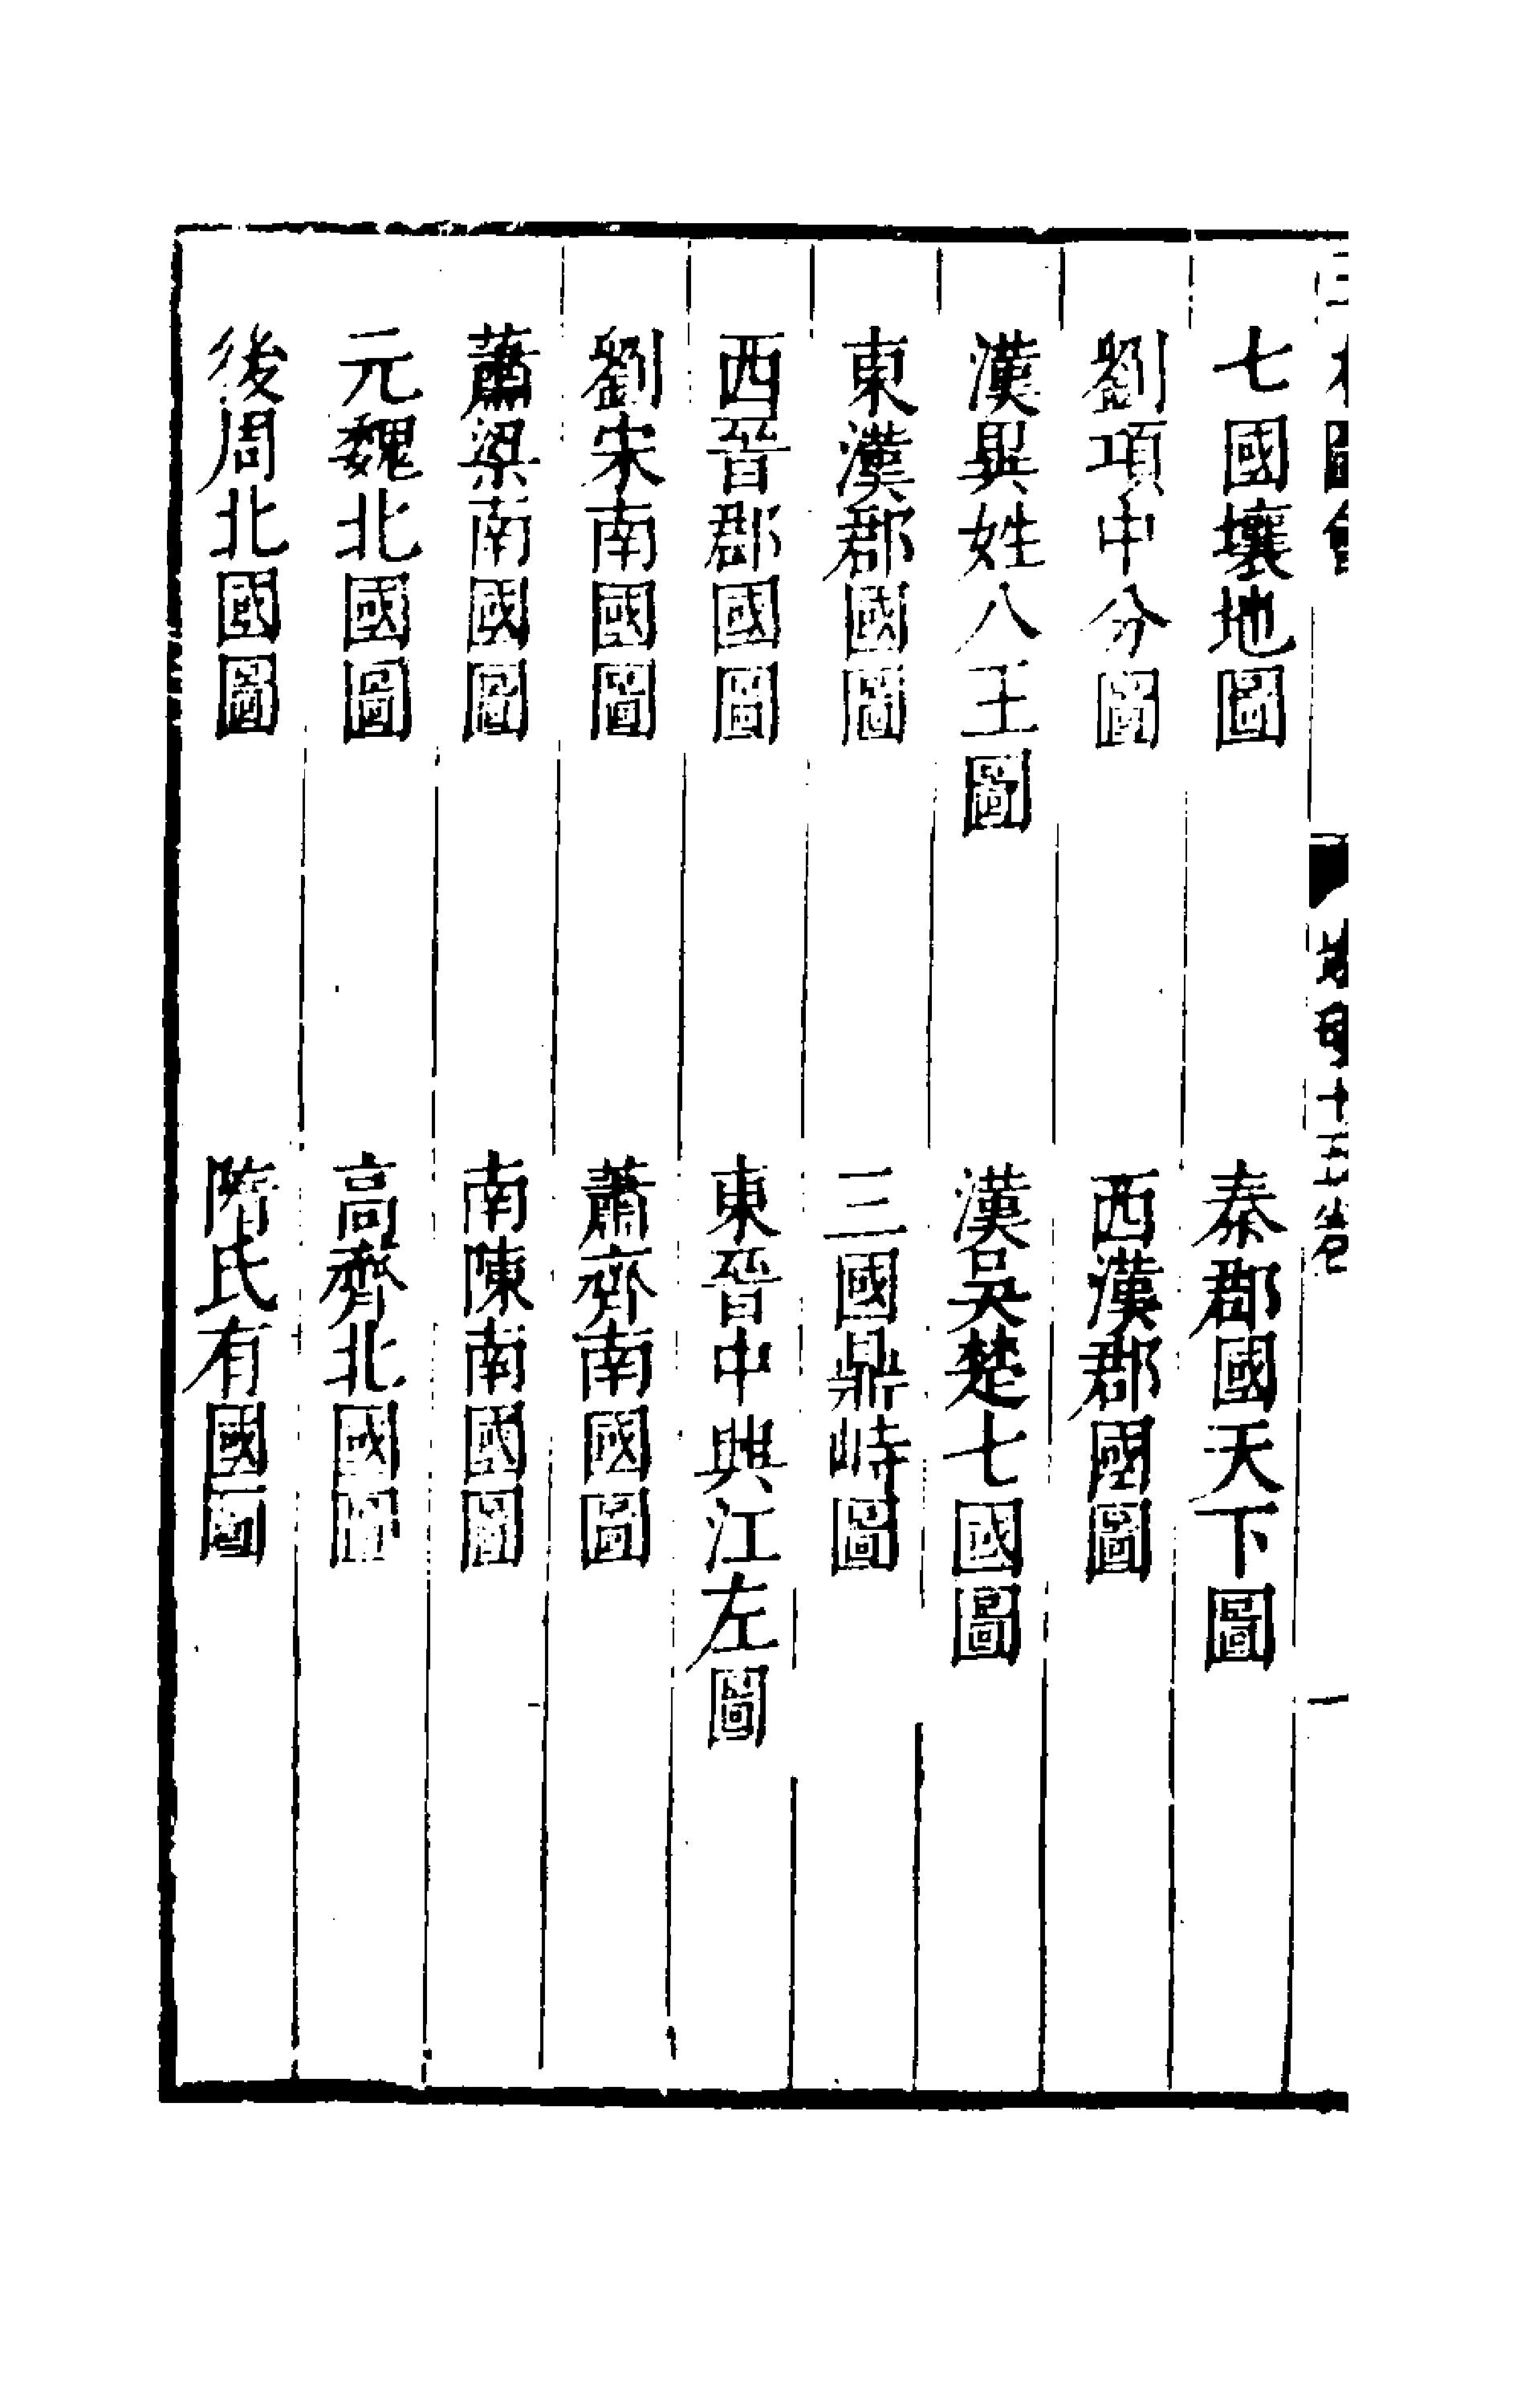 七國壤地圖　秦郡國天下圖
劉項中分圖　西漢郡國圖
漢異姓八王圖　漢吳楚七國圖
東漢郡國圖　三國鼎峙圖
西晉郡國圖　東晉中興江左圖
劉宋南國圖　蕭齊南國圖
蕭梁南國圖　南陳南國圖
元魏北國圖　高齊北國圖
後周北國圖　隋氏有國圖